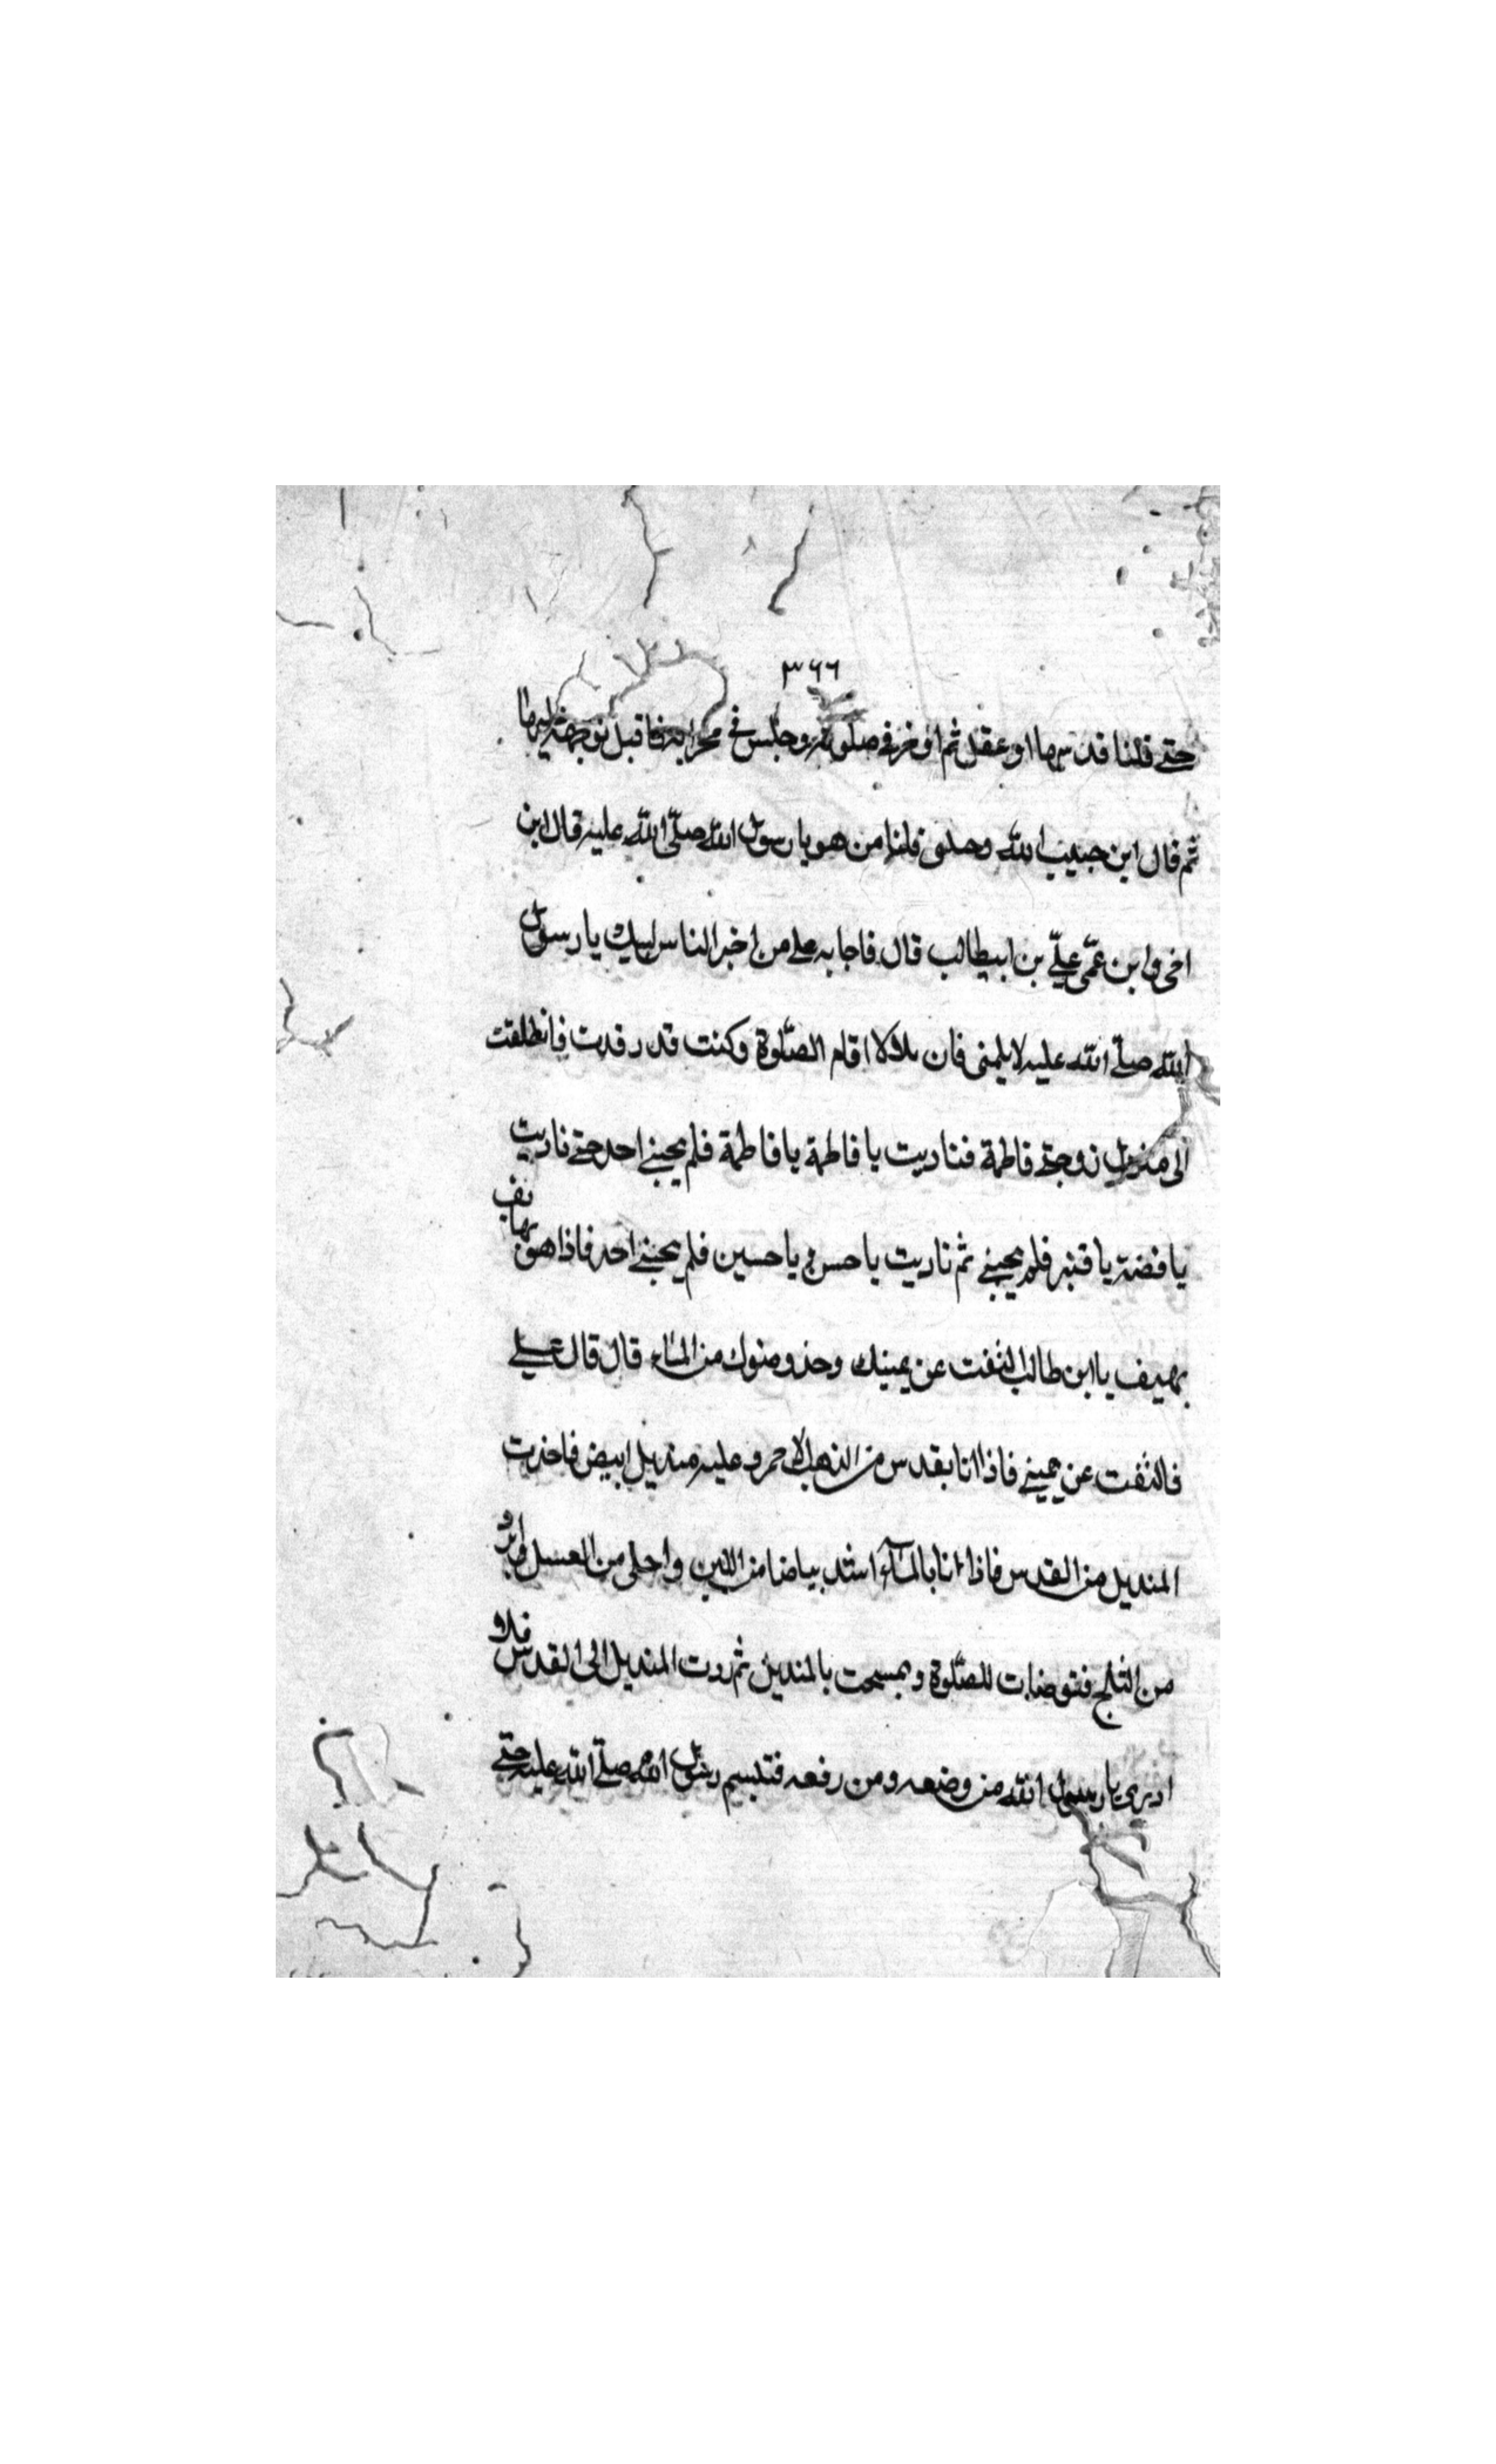 ٣٦٦
حتى قلنا قد سها او عقل ثم اوفر في صلوته وجلس في محرابه فاقبل بوجهه الينا
ثم قال اين حبيب الله وصلى قلنا من هو يا رسول الله صلّى الله عليه قال ابن
اخى وابن عمّى علىّ بن ابيطالب قال فاجابه على من اخر الناس لبيك يا رسول
الله صلّى الله عليه لا يلمنى فان بلالا اقام الصّلوة وكنت قد رقدت فانطلقت
الى منزل زوجتى فاطمة فناديت يا فاطمة يا فاطمة فلم يجبنى احد حتى ناديت
يا فضة يا قنبر فلم يجبنى ثم ناديت يا حسن يا حسين فلم يجبنى احد فاذا هو بهاتف
يهتف يا ابن طالب التفت عن يمينك وخذ وضوك من المآء قال قال على
فالتفت عن يمينى فاذا انا بقدس من الذهب الاحمر وعليه منديل ابيض فاخذت
المنديل من القدس فاذا انا بالمآء اشد بياضا من اللبن واحلى من العسل وابرد
من الثلج فتوضات للصّلوة وتمسحت بالمنديل ثم ردت المنديل الى القدس فلا و
ادرى يا رسول الله من وضعه ومن رفعه فتبسم رسول الله صلّى الله عليه حتى